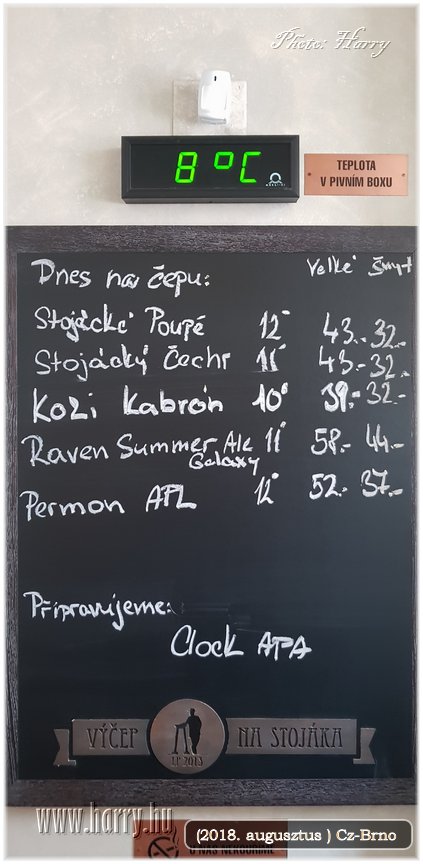 Photo: Harry
8°C
TEPLOTA
V PIVNÍM BOXU
Dnes na čepu: Velké Šnyt
Stojácké Poupě 12° 43.- 32.-
Stojácký Čechr 11° 43.- 32.-
Kozi Kabrón 10° 39.- 32.-
Raven Summer Ale 11° 58.- 44.-
Galaxy
Permon APL 12° 52.- 37.-
Připravujeme:
Clock APA
VÝČEP NA STOJÁKA
LP 2013
www.harry.hu
(2018. augusztus ) Cz-Brno
U NÁS NEKOUŘÍME